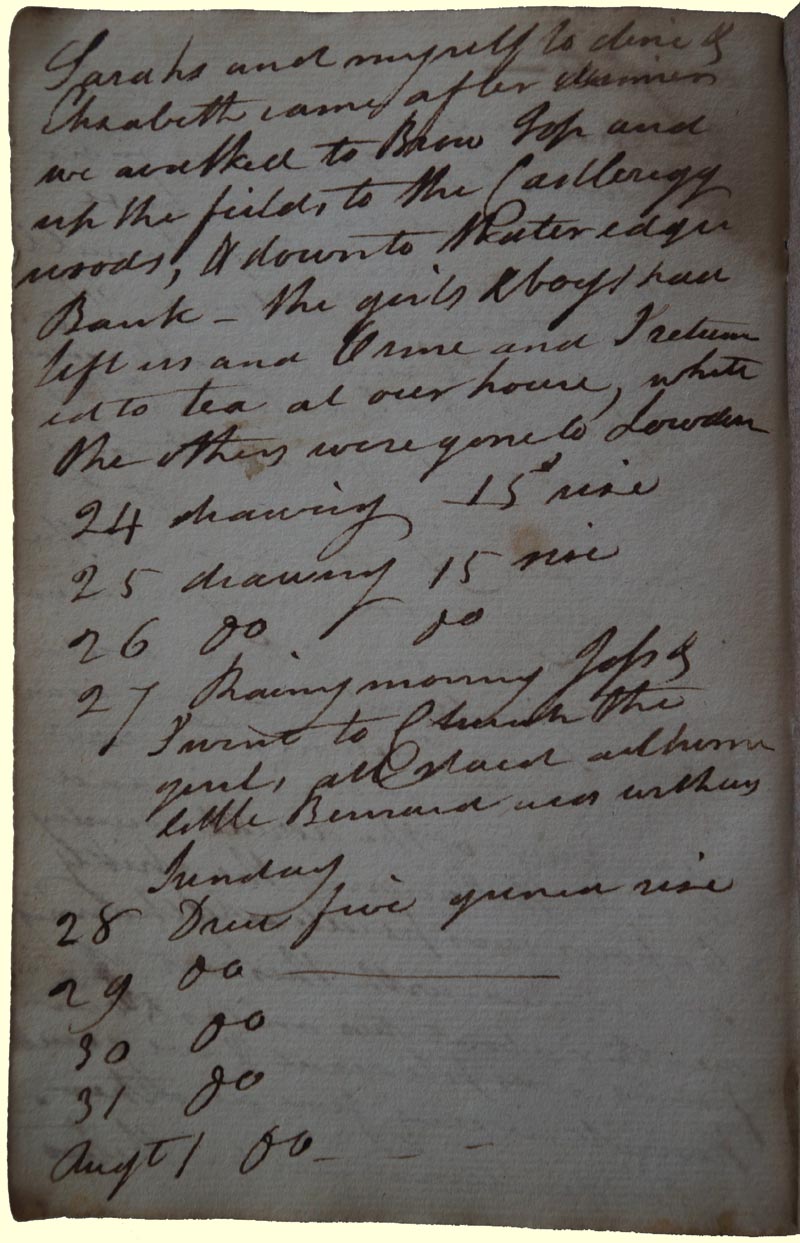 Sarahs and myself to dine &
Elizabeth came after dinner
we walked to Brow Top and
up the fields to the Castlerigg
woods, & down to Skater edge
Bank – the girls & boys had
left us and Orme and I return
ed to tea at our house, while
the others were gone to Lowdon
24 drawing 15s size
25 drawing 15 size
26 do do
27 Rainy morning Joss &
I went to Church the
girls, all staid at home
little Bernard was with us
Sunday
28 Drew five guinea size
29 do
30 do
31 do
Augt 1 do – – –